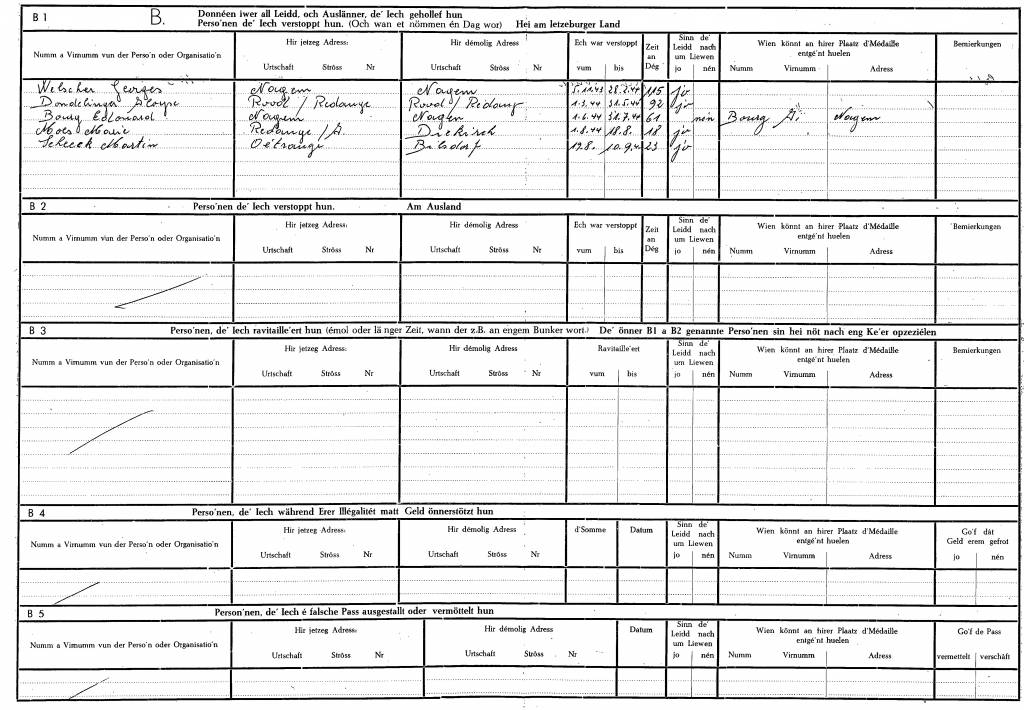 B 1 B. Donnéen iwer all Leidd, och Auslänner, de' Iech gehollef hun
Perso'nen de' Iech verstoppt hun. (Och wan et nömmen én Dag wor) Hei am letzeburger Land
Numm a Virnumm vun der Perso'n oder Organisatio'n
Hir jetzeg Adress: Hir démolig Adress Ech war verstoppt Zeit an Dég Sinn de' Leidd nach um Liewen Wien könnt an hirer Plaatz d'Médaille entgé'nt huelen Bemierkungen
Urtschaft Ströss Nr Urtschaft Ströss Nr vum bis jo nén Numm Virnumm Adress
Welscher Georges Nagem Nagem 5.11.43 28.2.44 115 jo
Dondelinger Aloyse Rood / Redange Rood / Redange 1.3.44 31.5.44 92 jo
Bourg Edouard Nagem Nagem 1.6.44 31.7.44 61 nén Bourg G. Nagem
Moes Marie Redange /A. Diekirch 1.8.44 18.8. 18 jo
Scheeck Martin Oétrange Bilsdorf 19.8. 10.9.44 23 jo
B 2 Perso'nen de' Iech verstoppt hun. Am Ausland
Numm a Virnumm vun der Perso'n oder Organisatio'n
Hir jetzeg Adress: Hir démolig Adress Ech war verstoppt Zeit an Dég Sinn de' Leidd nach um Liewen Wien könnt an hirer Plaatz d'Médaille entgé'nt huelen Bemierkungen
Urtschaft Ströss Nr Urtschaft Ströss Nr vum bis jo nén Numm Virnumm Adress
B 3 Perso'nen, de' Iech ravitaille'ert hun (émol oder länger Zeit, wann der z.B. an engem Bunker wort.) De' önner B1 a B2 genannte Perso'nen sin hei nöt nach eng Ke'er opzeziélen
Numm a Virnumm vun der Perso'n oder Organisatio'n
Hir jetzeg Adress: Hir démolig Adress Ravitaille'ert Sinn de' Leidd nach um Liewen Wien könnt an hirer Plaatz d'Médaille entgé'nt huelen Bemierkungen
Urtschaft Ströss Nr Urtschaft Ströss Nr vum bis jo nén Numm Virnumm Adress
B 4 Perso'nen, de' Iech während Erer Illégalitét matt Geld önnerstötzt hun
Numm a Virnumm vun der Perso'n oder Organisatio'n
Hir jetzeg Adress: Hir démolig Adress d'Somme Datum Sinn de' Leidd nach um Liewen Wien könnt an hirer Plaatz d'Médaille entgé'nt huelen Go'f dât Geld erem gefrot
Urtschaft Ströss Nr Urtschaft Ströss Nr jo nén Numm Virnumm Adress jo nén
B 5 Person'nen, de' Iech é falsche Pass ausgestallt oder vermöttelt hun
Numm a Virnumm vun der Perso'n oder Organisatio'n
Hir jetzeg Adress: Hir démolig Adress Datum Sinn de' Leidd nach um Liewen Wien könnt an hirer Plaatz d'Médaille entgé'nt huelen Go'f de Pass
Urtschaft Ströss Nr Urtschaft Ströss Nr jo nén Numm Virnumm Adress vermettelt verschâft